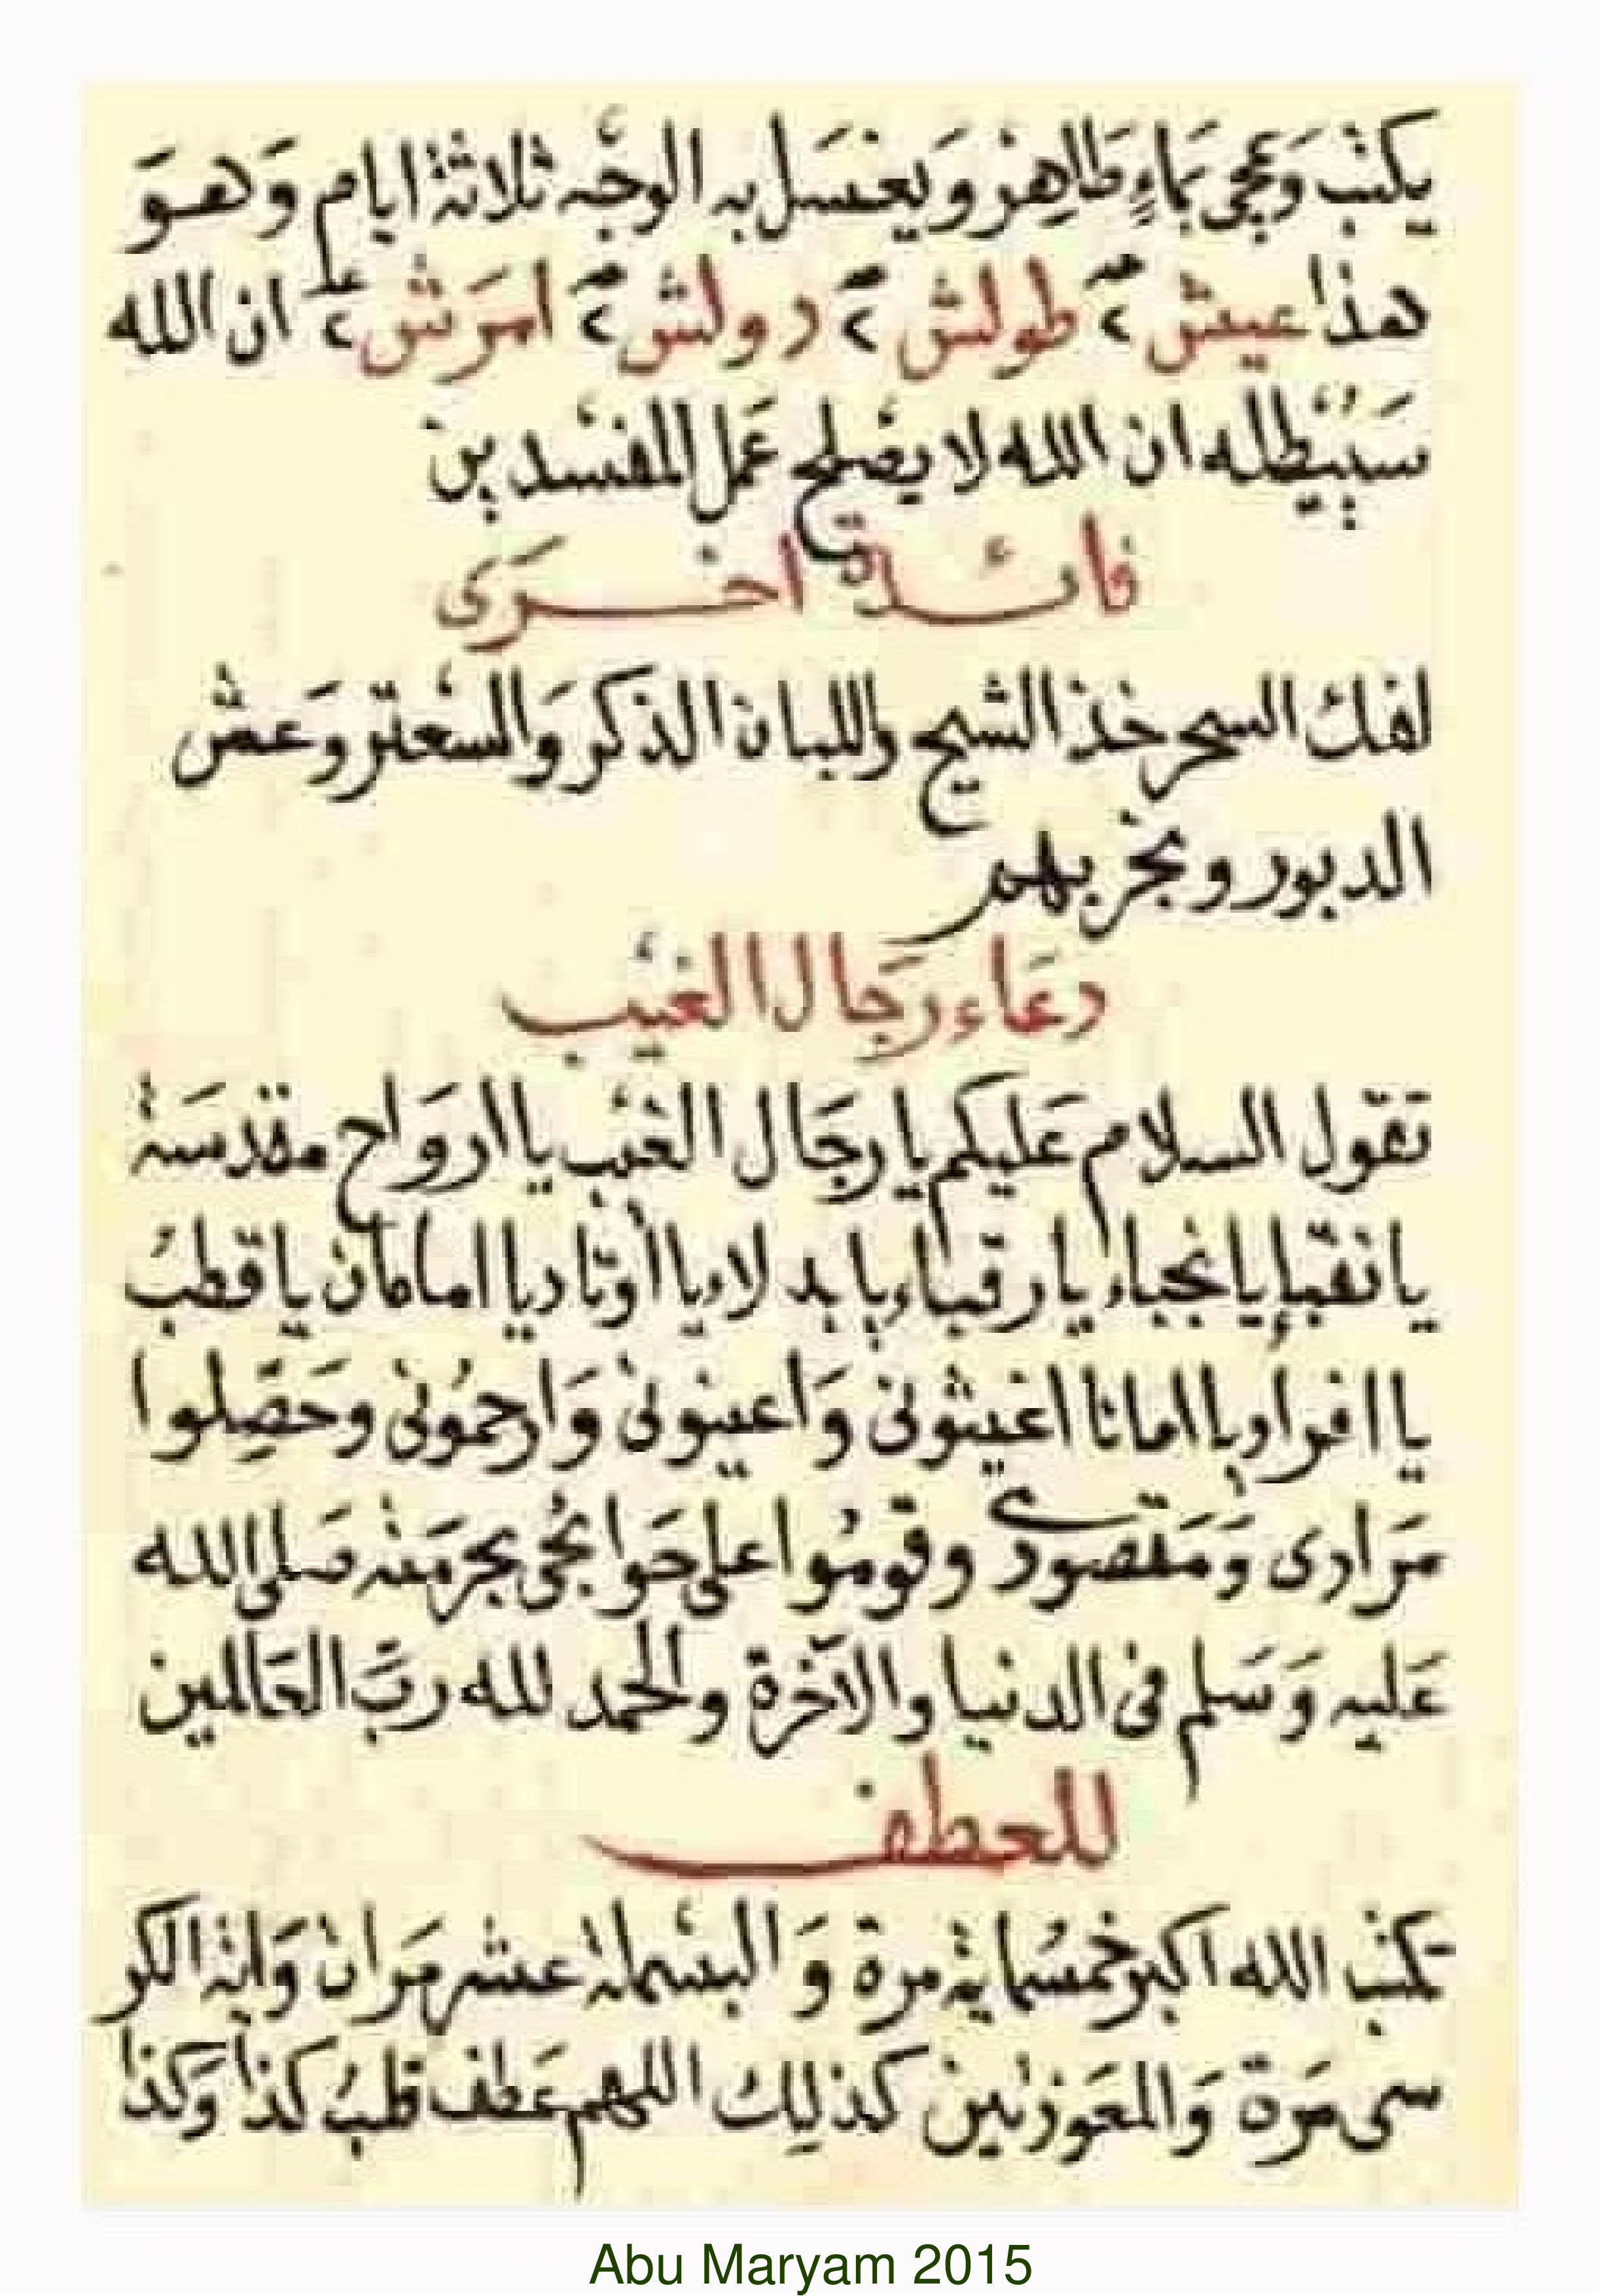 يكتب ويمحى بماءٍ طاهر ويغسل به الوجه ثلاثة ايام وهو
هذا عيش ٢ طولش ٢ دولش ٢ امرش ٢ ان الله
سيبطله ان الله لا يصلح عمل المفسدين
فائدة اخرى
لفك السحر خذ الشيح واللبان الذكر والسعتر وعش
الدبور وبخر بهم
دعاء رجال الغيب
تقول السلام عليكم يا رجال الغيب يا ارواح مقدسة
يا نقبا يا نجباء يا رقباء يا بدلاء يا أوتاد يا امامان يا قطب
يا افراد يا امانا اغيثونى واعينونى وارحمونى وحصلوا
مرادى ومقصودى وقوموا على حوايجى بحرمته صلى الله
عليه وسلم فى الدنيا والآخرة والحمد لله ربّ العالمين
للعطف
تكتب الله اكبر خمسماية مرة والبسملة عشر مرات واية الكر
سى مرة والمعوزتين كذلك اللهم عطف قلب كذا وكذا
Abu Maryam 2015